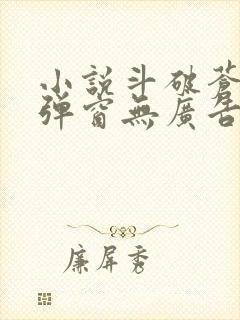 小說斗破蒼
彈窗無廣告
廉屏秀